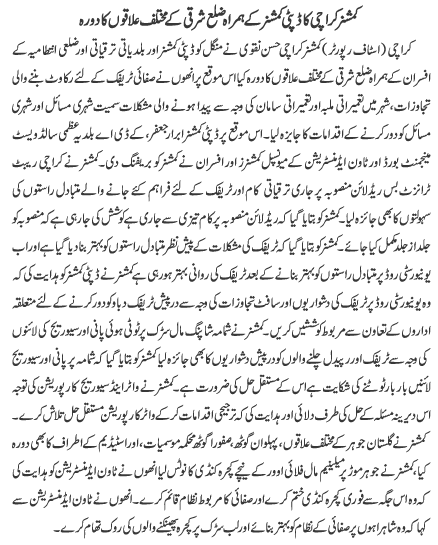 کمشنر کراچی کا ڈپٹی کمشنر کے ہمراہ ضلع شرقی کے مختلف علاقوں کا دورہ
کراچی (اسٹاف رپورٹر) کمشنر کراچی حسن نقوی نے منگل کو ڈپٹی کمشنر اور بلدیاتی ترقیاتی اور ضلعی انتظامیہ کے
افسران کے ہمراہ ضلع شرقی کے مختلف علاقوں کا دورہ کیا اس موقع پر انھوں نے صفائی ٹریفک کے لئے رکاوٹ بننے والی
تجاوزات، شہر میں تعمیراتی ملبہ اور تعمیراتی سامان کی وجہ سے پیدا ہونے والی مشکلات سمیت شہری مسائل اور شہری
مسائل کو دور کرنے کے اقدامات کا جائزہ لیا۔ اس موقع پر ڈپٹی کمشنر ابرار جعفر، کے ڈی اے بلدیہ عظمی سالڈ ویسٹ
مینجمنٹ بورڈ اور ٹاون ایڈمنسٹریشن کے میونسپل کمشنرز اور افسران نے کمشنر کو بریفنگ دی۔ کمشنر نے کراچی ریپٹ
ٹرانزٹ بس ریڈ لائن منصوبہ پر جاری ترقیاتی کام اور ٹریفک کے لئے فراہم کئے جانے والے متبادل راستوں کی
سہولتوں کا بھی جائزہ لیا۔ کمشنر کو بتایا گیا کہ ریڈ لائن منصوبہ پر کام تیزی سے جاری ہے کوشش کی جارہی ہے کہ منصوبہ کو
جلد از جلد مکمل کیا جائے۔ کمشنر کو بتایا گیا کہ ٹریفک کی مشکلات کے پیش نظر متبادل راستوں کو بہتر بنا دیا گیا ہے اور اب
یونیورسٹی روڈ پر متبادل راستوں کو بہتر بنانے کے بعد ٹریفک کی روانی بہتر ہو رہی ہے کمشنر نے ڈپٹی کمشنر کو ہدایت کی کہ
وہ یونیورسٹی روڈ پر ٹریفک کی دشواریوں اور سافٹ تجاوزات کی وجہ سے درپیش ٹریفک دباو کو دور کرنے کے لئے متعلقہ
اداروں کے تعاون سے مربوط کوششیں کریں۔ کمشنر نے شمامہ شاپنگ مال سڑک پر ٹوٹی ہوئی پانی اور سیوریج کی لائنوں
کی وجہ سے ٹریفک اور پیدل چلنے والوں کو درپیش دشواریوں کا بھی جائزہ لیا کمشنر کو بتایا گیا کہ شمامہ پر پانی اور سیوریج
لائنیں بار بار ٹوٹنے کی شکایت ہے اس کے مستقل حل کی ضرورت ہے۔ کمشنر نے واٹر اینڈ سیوریج کارپوریشن کی توجہ
اس دیرینہ مسئلہ کے حل کی طرف دلائی اور ہدایت کی کہ ترجیحی اقدامات کر کے واٹر کارپوریشن مستقل حل تلاش کرے۔
کمشنر نے گلستان جوہر کے مختلف علاقوں، پہلوان گوٹھ، صفورا گوٹھ، محکمہ موسمیات، اور اسٹیڈیم کے اطراف کا بھی دورہ
کیا، کمشنر نے جوہر موڑ پر میلینیم مال فلائی اوور کے نیچے کچرہ کنڈی کا نوٹس لیا انھوں نے ٹاون ایڈمنسٹریشن کو ہدایت کی
کہ وہ اس جگہ سے فوری کچرہ کنڈی ختم کرے اور صفائی کا مربوط نظام قائم کرے۔ انھوں نے ٹاون ایڈمنسٹریشن سے
کہا کہ وہ شاہراہوں پر صفائی کے نظام کو بہتر بنائے اور لب سڑک پر کچرہ پھینکنے والوں کی روک تھام کرے۔